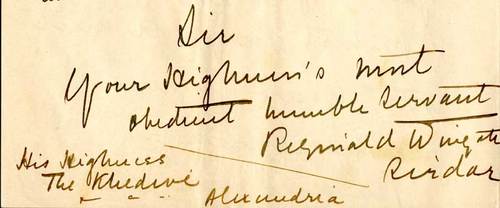 Sir
Your Highness's most
obedient humble Servant
Reginald Wingate
Sirdar
His Highness
The Khedive
Alexandria